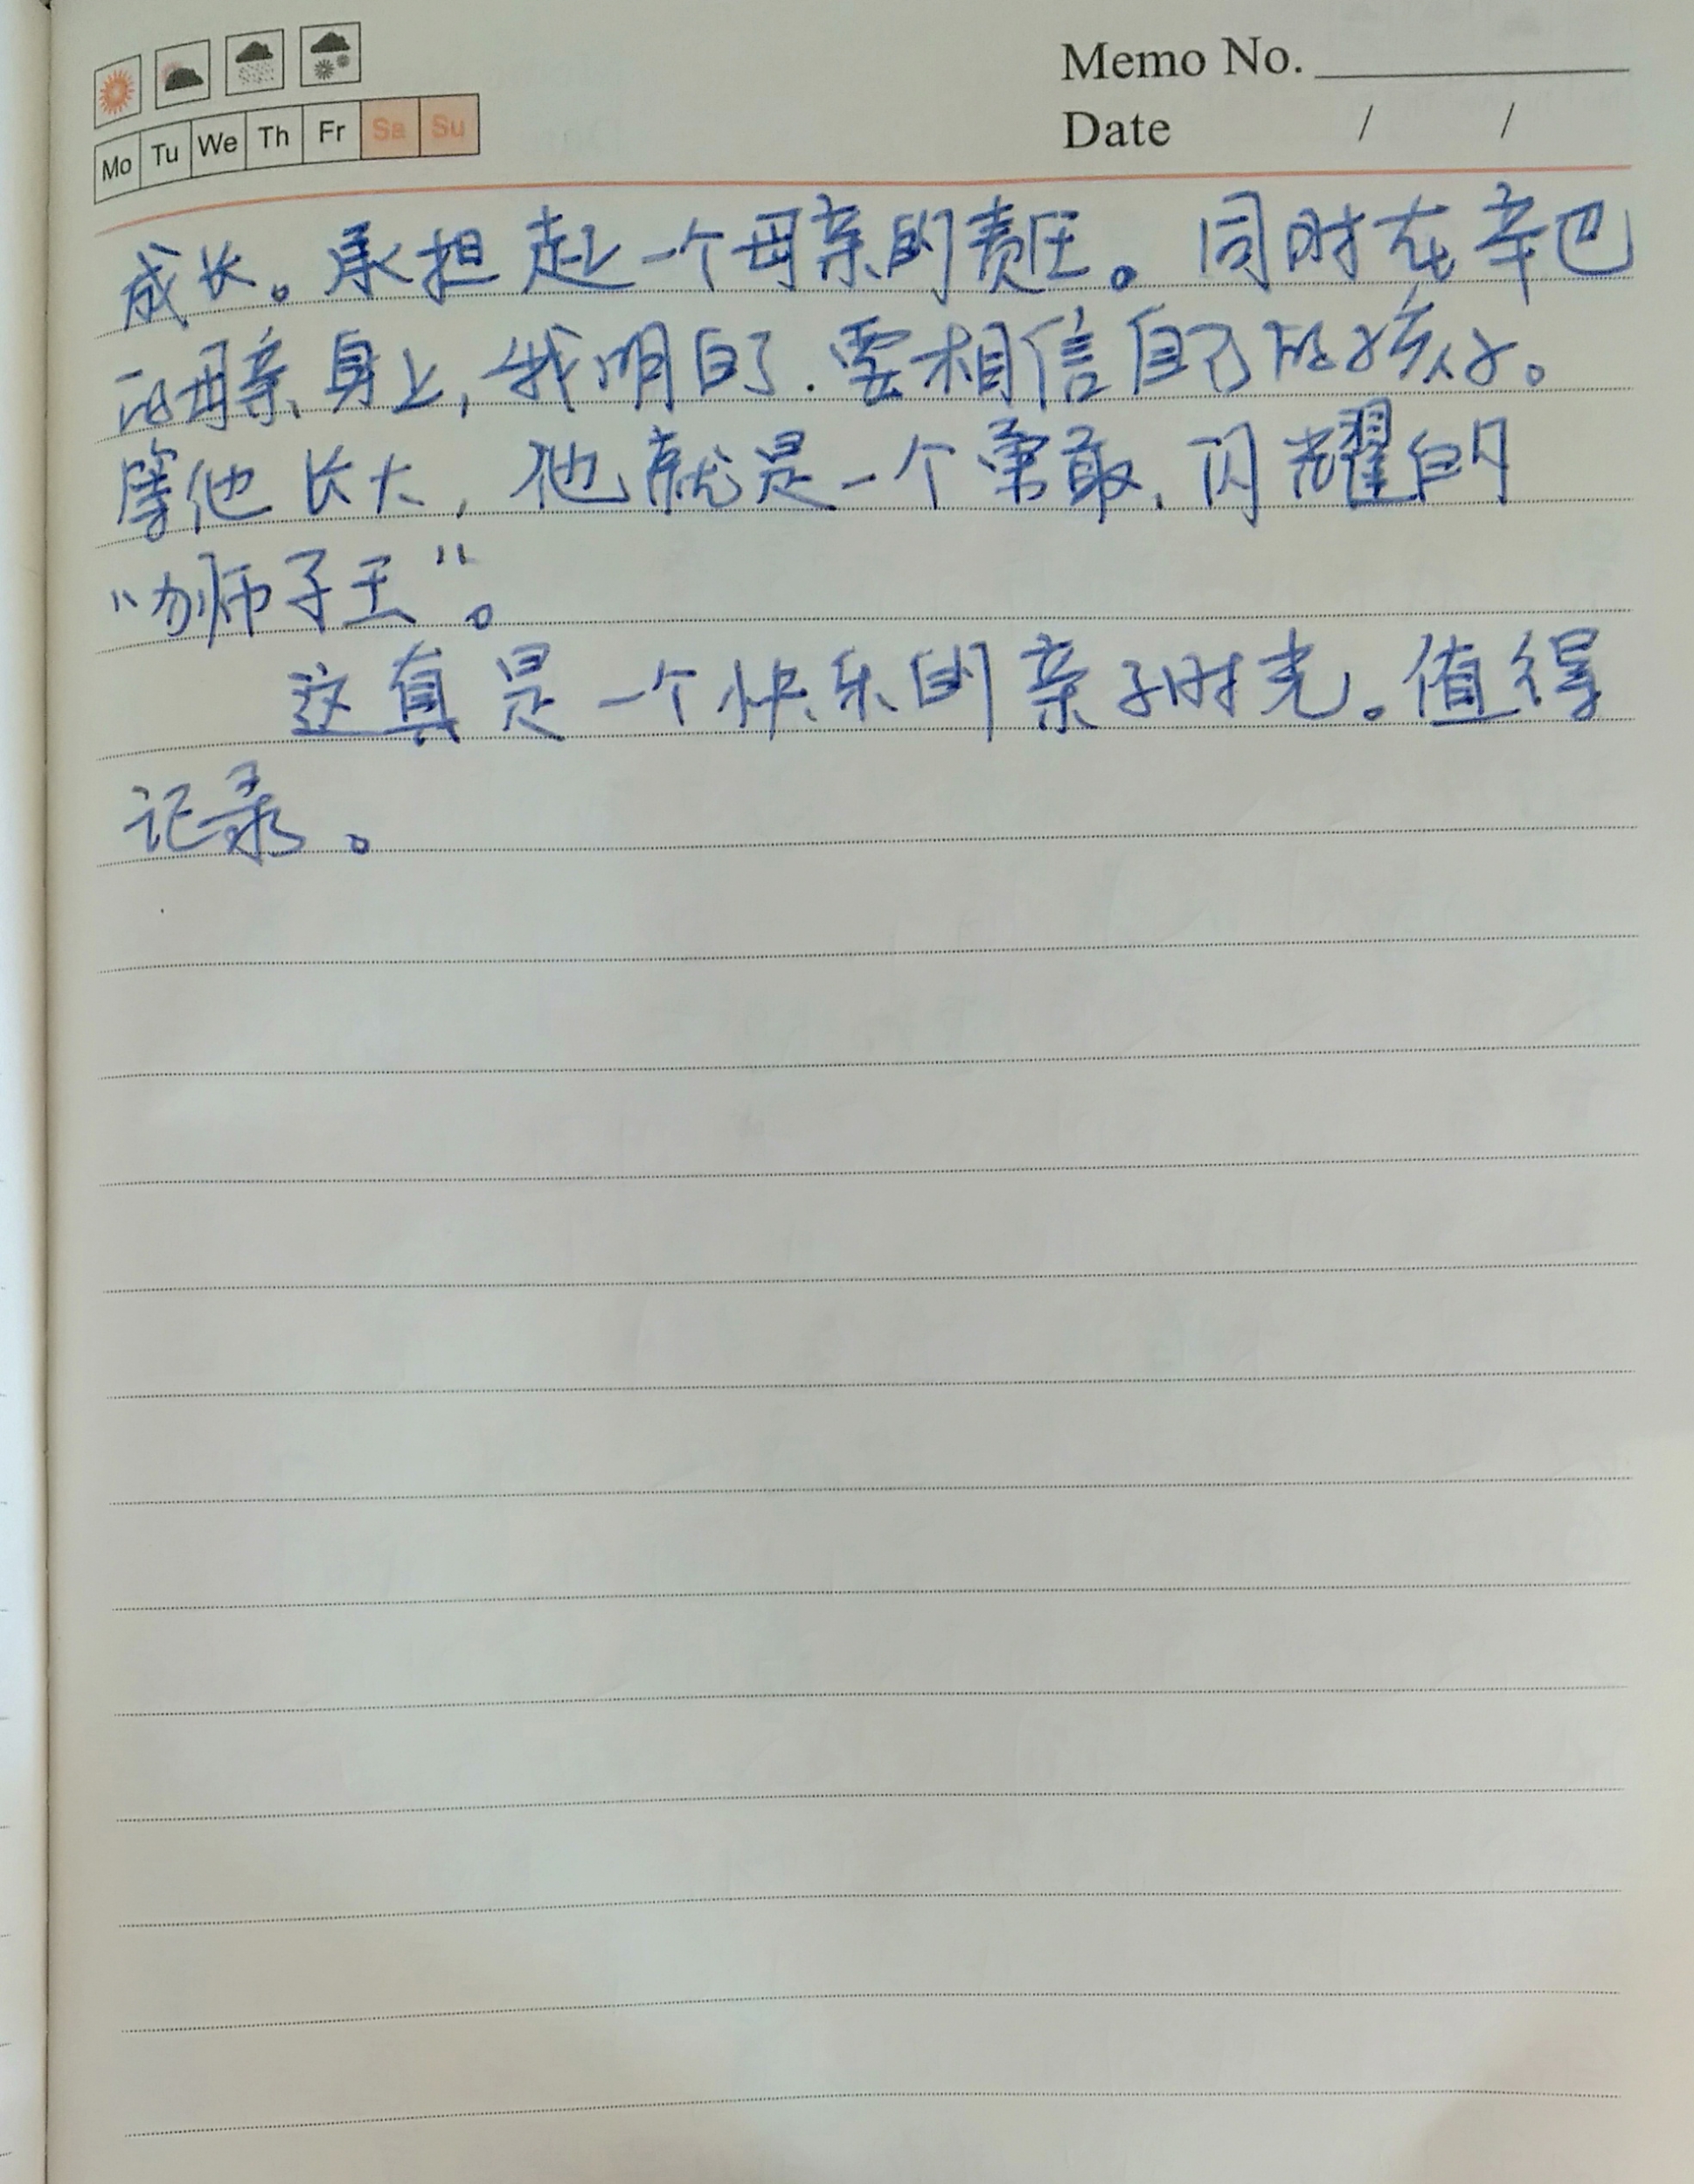 Memo No.
Mo Tu We Th Fr Sa Su
Date / /
成长。承担起一个母亲的责任。同时在辛巴
的母亲身上，我明白了.要相信自己的孩子。
等他长大，他就是一个勇敢、闪耀的
“小狮子王”。
这真是一个快乐的亲子时光。值得
记录。